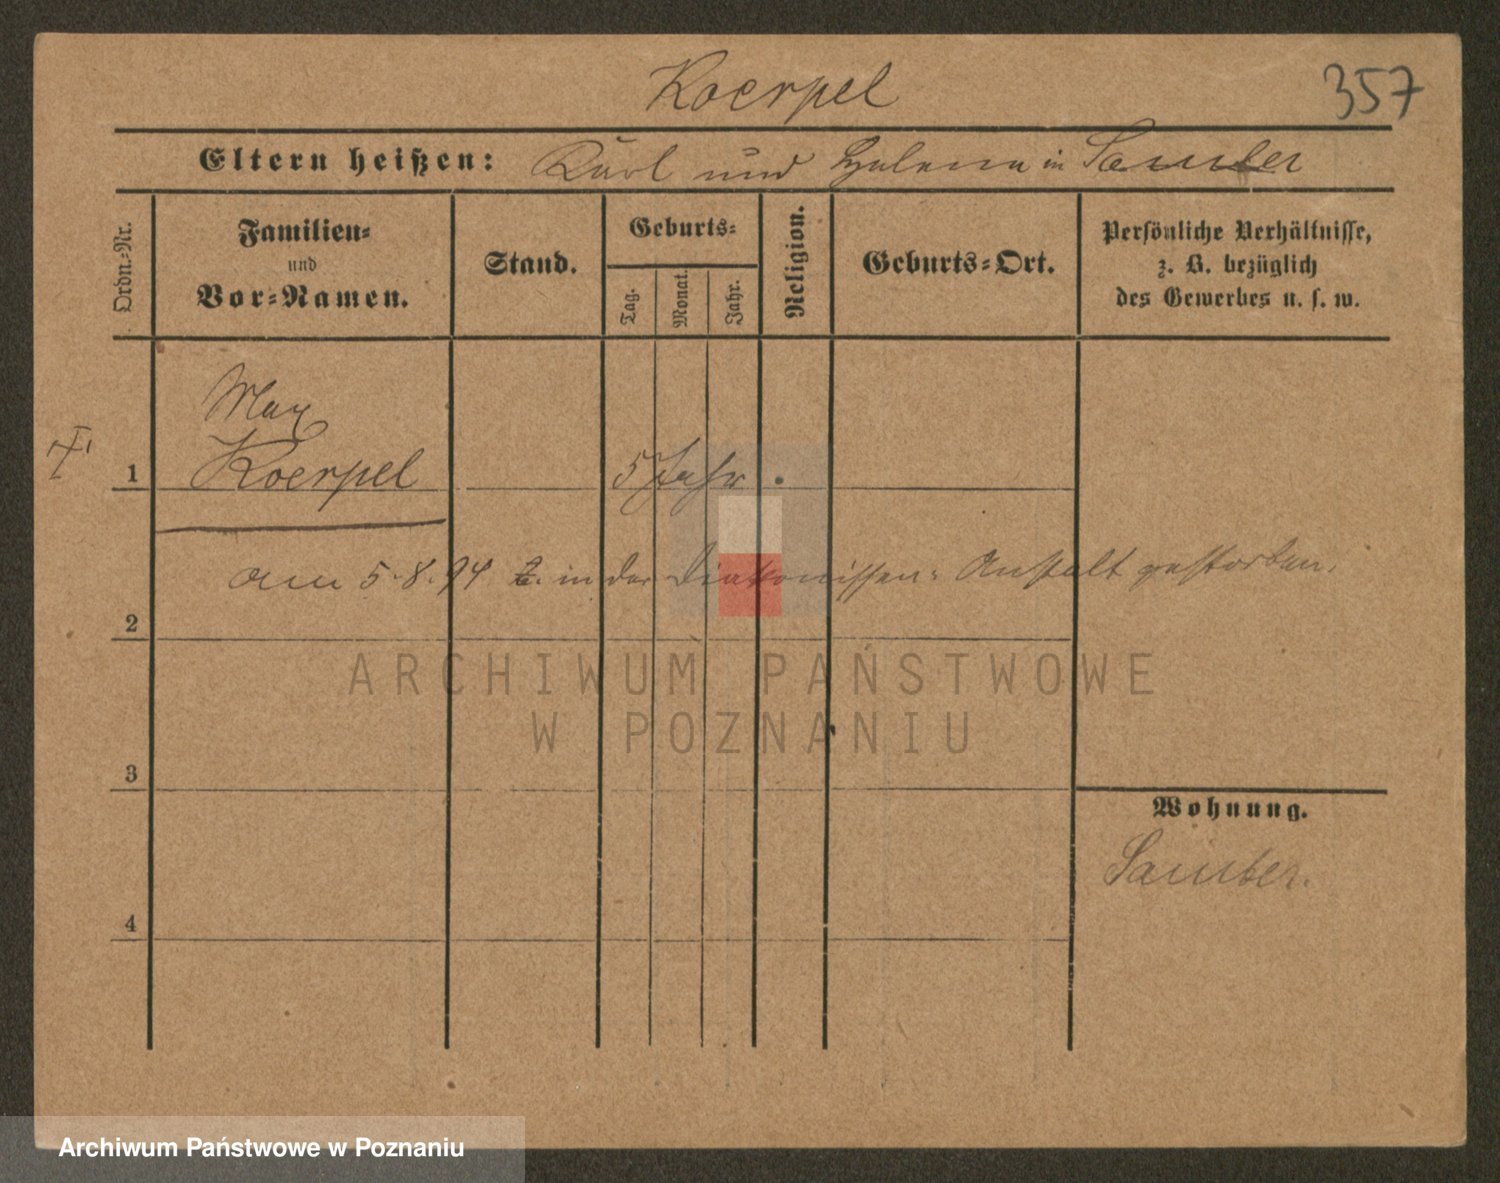 Koerpel
357
Eltern heißen: Karl und Helena in Samter
Ordn.-Nr.
Familien-
und
Vor-Namen.
Stand.
Geburts-
Tag.
Monat.
Jahr.
Religion.
Geburts-Ort.
Persönliche Verhältnisse,
z. B. bezüglich
des Gewerbes u. s. w.
Max
1 Koerpel 5 Jahr
am 5.8.94 in der Diakonissen-Anstalt gestorben.
2
ARCHIWUM PAŃSTWOWE
W POZNANIU
3
Wohnung.
Samter.
4
Archiwum Państwowe w Poznaniu